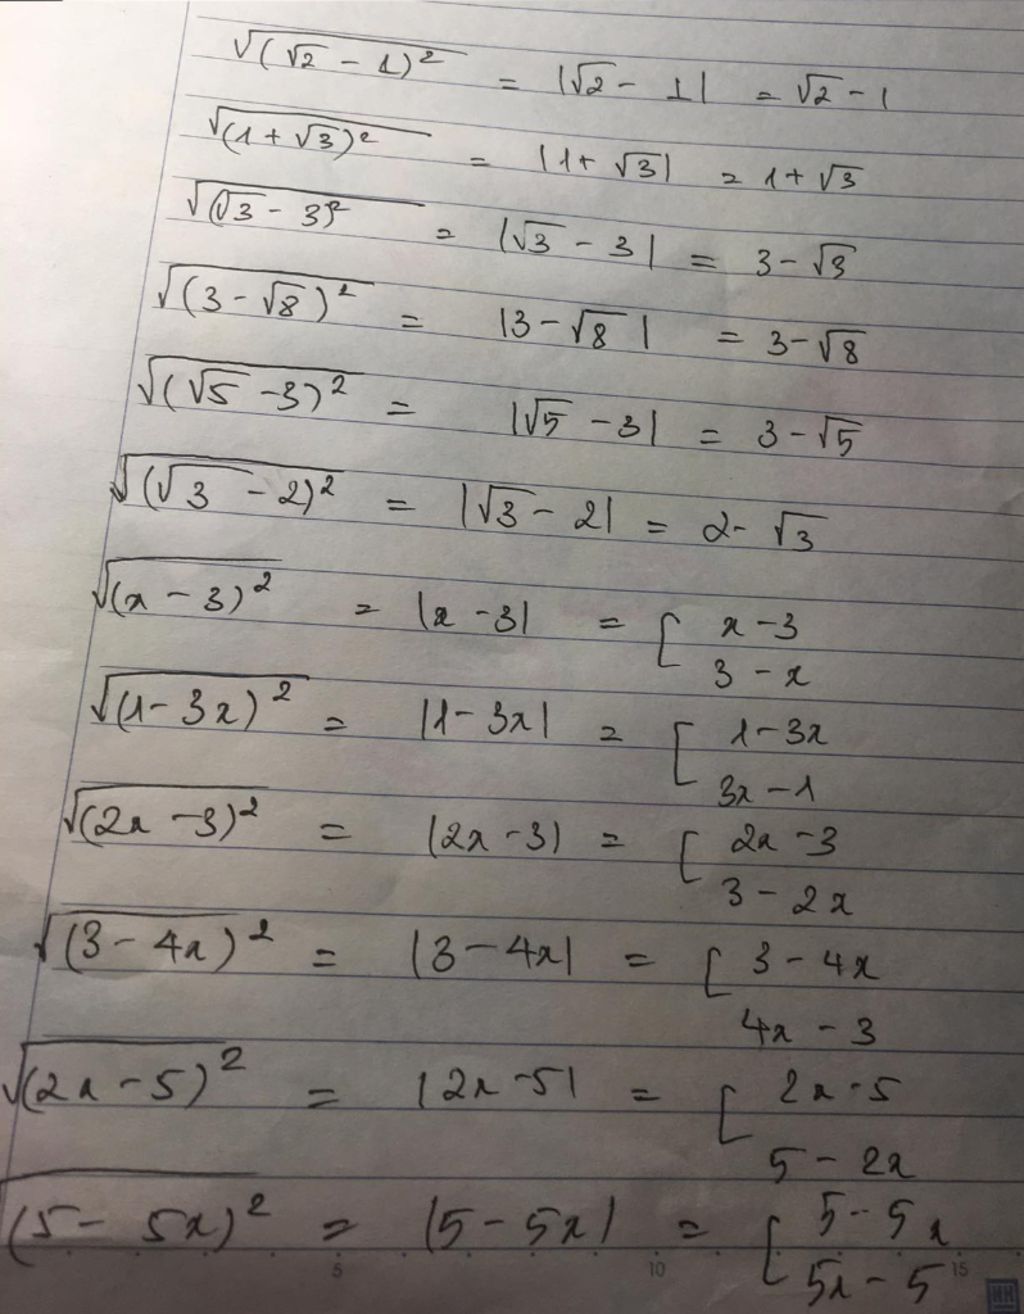 √(√2 - 1)² = |√2 - 1| = √2 - 1
√(1 + √3)² = |1 + √3| = 1 + √3
√(√3 - 3)² = |√3 - 3| = 3 - √3
√(3 - √8)² = |3 - √8| = 3 - √8
√(√5 - 3)² = |√5 - 3| = 3 - √5
√(√3 - 2)² = |√3 - 2| = 2 - √3
√(x - 3)² = |x - 3| = [ x - 3
3 - x
√(1 - 3x)² = |1 - 3x| = [ 1 - 3x
3x - 1
√(2x - 3)² = |2x - 3| = [ 2x - 3
3 - 2x
√(3 - 4x)² = |3 - 4x| = [ 3 - 4x
4x - 3
√(2x - 5)² = |2x - 5| = [ 2x - 5
5 - 2x
√(5 - 5x)² = |5 - 5x| = [ 5 - 5x
5x - 5
5 10 15